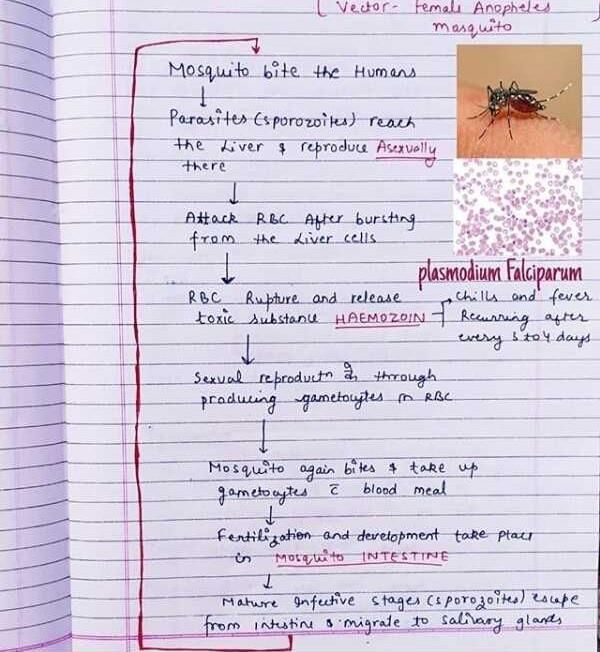 [Vector- Female Anopheles
mosquito
Mosquito bite the Humans
Parasites (sporozoites) reach
the Liver & reproduce Asexually
there
Attack RBC After bursting
from the Liver cells
plasmodium Falciparum
RBC Rupture and release
toxic substance HAEMOZOIN
Chills and fever
Recurring after
every 3 to 4 days
Sexual reproductn through
producing gametocytes in RBC
Mosquito again bites & take up
gametocytes c̄ blood meal
Fertilization and development take place
in Mosquito INTESTINE
Mature Infective stages (sporozoites) escape
from intestine & migrate to salivary glands